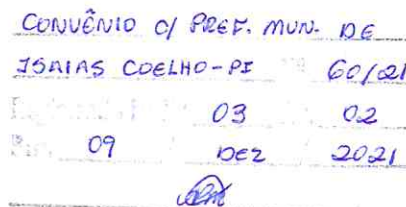 CONVÊNIO C/ PREF. MUN. DE
ISAIAS COELHO-PI 60/021
03 02
09 DEZ 2021